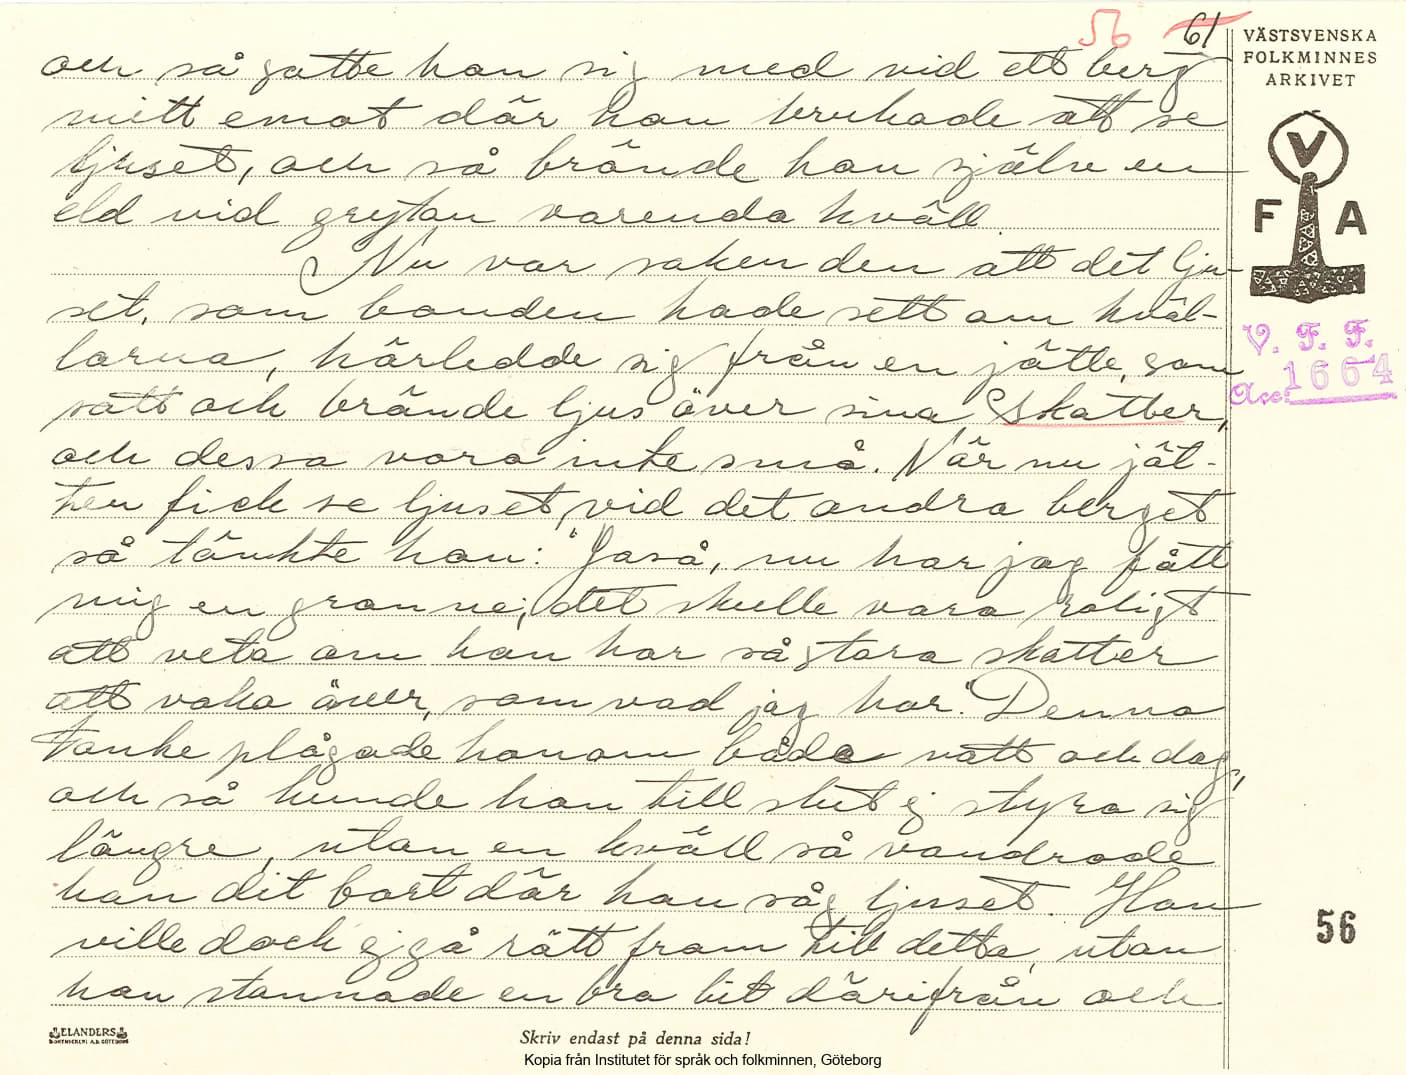 56 61
och så satte han sig med vid ett berg
mitt emot där han brukade att se
ljuset, och så brände han själv en
eld vid grytan varenda kväll.
Nu var saken den att det lju-
set, som bonden hade sett om kväl-
larna, härledde sig från en jätte, som
satt och brände ljus över sina skatter,
och dessa voro inte små. När nu jät-
ten fick se ljuset vid det andra berget
så tänkte han: "Jaså, nu har jag fått
mig en granne; det skulle vara roligt
att veta om han har så stora skatter
att vaka över, som vad jag har." Denna
tanke plågade honom både natt och dag,
och så kunde han till slut ej styra sig
längre, utan en kväll så vandrade
han dit bort där han såg ljuset. Han
ville dock ej gå rätt fram till detta, utan
han stannade en bra bit därifrån och
VÄSTSVENSKA
FOLKMINNES
ARKIVET
V
F A
V. F. F.
Acc: 1664
56
ELANDERS
BOKTRYCKERI A.B. GÖTEBORG
Skriv endast på denna sida!
Kopia från Institutet för språk och folkminnen, Göteborg